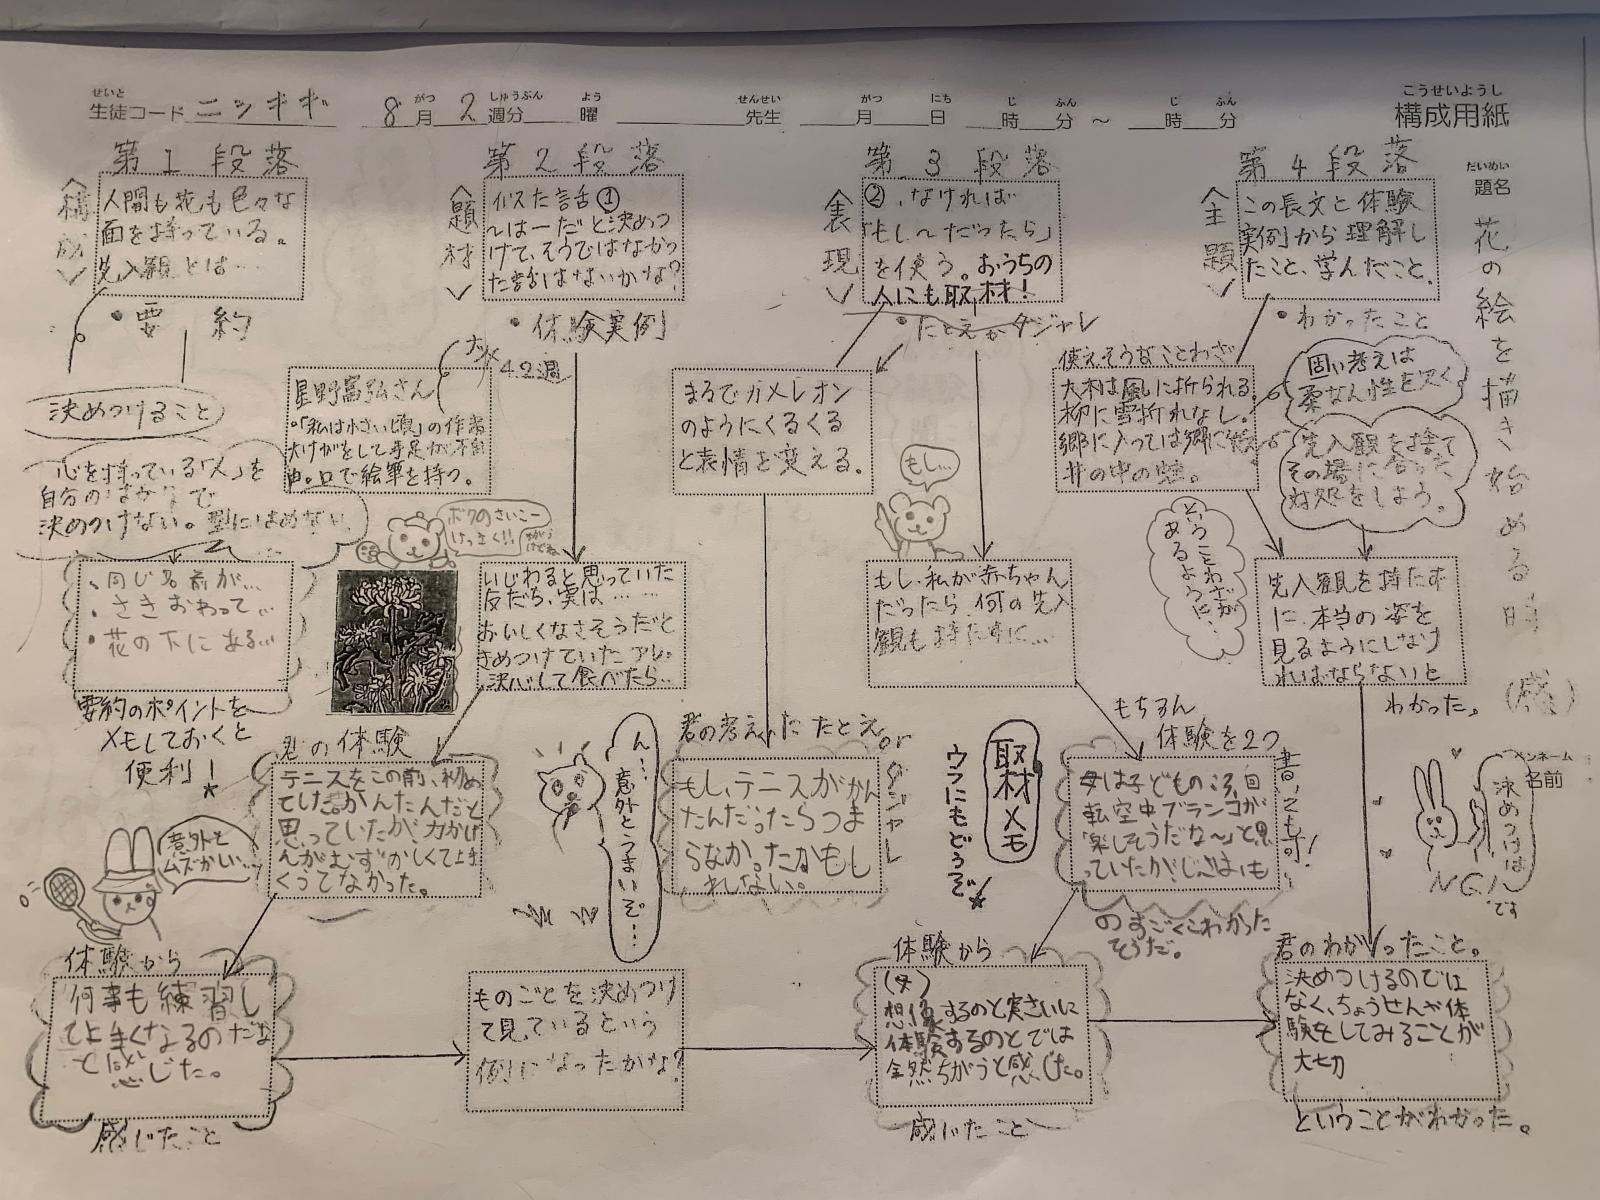 せいと
生徒コード ニシギギ
8月 2週分 曜 先生 月 日 時 分 ～ 時 分
こうせいようし
構成用紙
だいめい
題名
花の絵を描き始める時 (感)
ペンネーム
名前
第1段落
〈構成〉
人間も花も色々な
面を持っている。
先入観とは…
・要約
決めつけること
心を持っている「人」を
自分の
決めつけない。型にはめない
・同じ名前が…
・さきおわって…
・花の下にある…
要約のポイントを
メモしておくと
便利！
意外と
ムズかしい…
体験から
何事も練習し
て上手くなるのだな
と感じた。
感じたこと
第2段落
〈題材〉
似た話①
～は…だと決めつ
けて、そうではなかっ
た話はないかな？
・体験実例
4.2週
星野富弘さん
・「私は小さい頃」の作者
大けがをして手足が不自
由。口で絵筆を持つ。
ボクのさいこー
けっさく!!
いじわると思っていた
友だち、実は……
おいしくなさそうだと
きめつけていたアレ。
決心して食べたら…
君の体験
テニスをこの前、初め
てした。かんたんだと
思っていたが、力かげ
んがむずかしくて上手
くうてなかった。
ん…
意外とうまいぞ…
ものごとを決めつけ
て見ているという
例になったかな？
第3段落
〈表現〉
②、なければ
「もし～だったら」
を使う。おうちの
人にも取材！
・たとえかダジャレ
まるでカメレオン
のようにくるくる
と表情を変える。
もし…
もし、私が赤ちゃん
だったら何の先入
観も持たずに…
君の考えた たとえorダジャレ
もし、テニスがかん
たんだったらつま
らなかったかもし
れない。
取材メモ
ウラにもどうぞ！
もちろん
体験を2つ
書いても可！
母は子どものころ、自
転空中ブランコが
「楽しそうだな～」と思
っていたが、じっさいはも
のすごくこわかった
そうだ。
体験から
想像するのと実さいに
体験するのとでは
全然ちがうと感じた。
感じたこと
第4段落
〈主題〉
この長文と体験
実例から理解し
たこと、学んだこと。
・わかったこと
使えそうなことわざ
大木は風に折られる。
柳に雪折れなし。
郷に入っては郷に従え
井の中の蛙。
固い考えは
柔なん性を欠く
先入観を捨て
その場に合った
対処をしよう。
ということわざが
あるように…
先入観を持たず
に、本当の姿を
見るようにしなけ
ればならないと
わかった。
決めつけは
N.G.!
です
君のわかったこと。
決めつけるのでは
なく、ちょうせんや体
験をしてみることが
大切
ということがわかった。